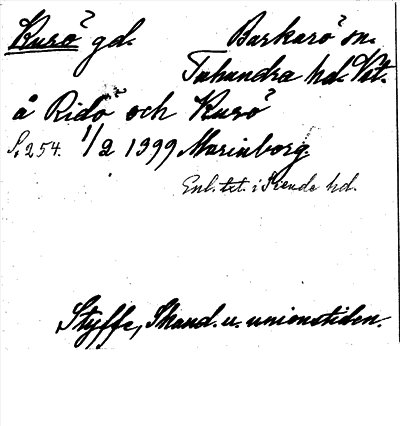 Kurö gd. Barkarö sn.
Tuhundra hd. Vst.
å Ridö och Kurö
S. 254. 1/2 1399 Marinborg.
Enl. txt. i Siende hd.
Styffe, Skand. u. unionstiden.